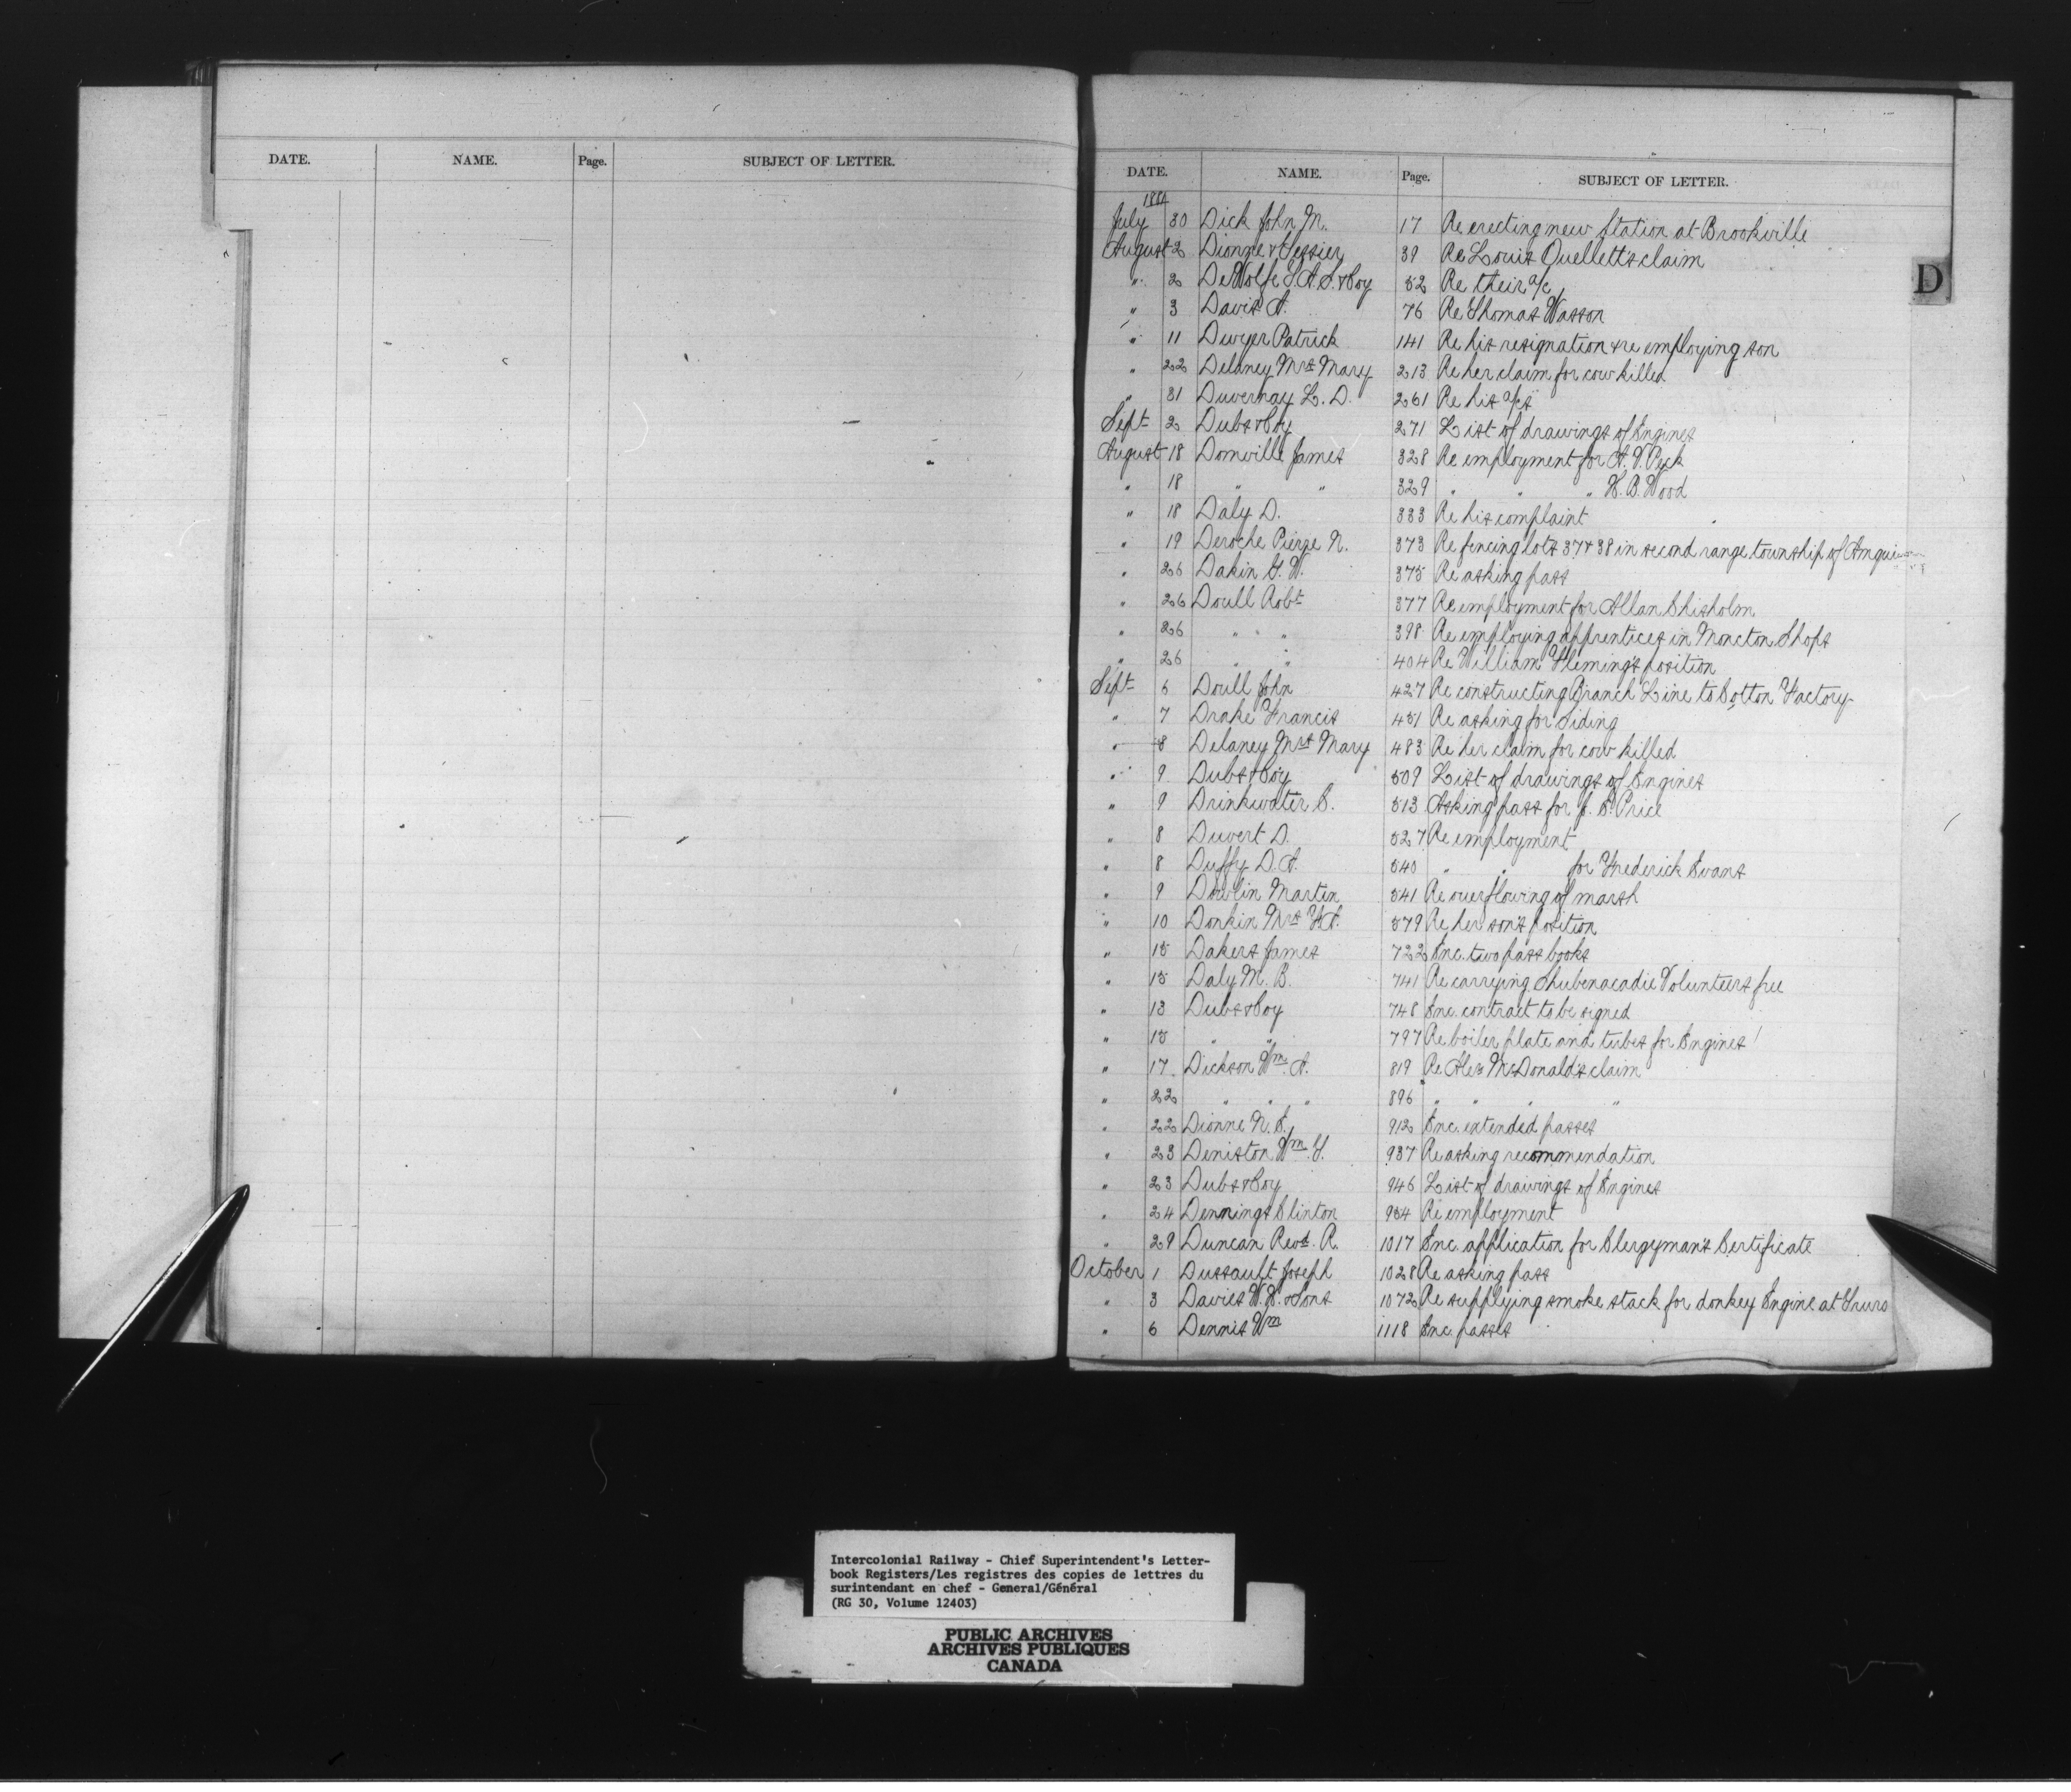 DATE. NAME. Page. SUBJECT OF LETTER.
DATE. NAME. Page. SUBJECT OF LETTER.
D
July 30 Dick John M. 17 Re erecting new Station at Brookville
August 2 Dionne & Tessier 39 Re Louis Ouellett's claim
" 2 DeWolfe T.A.S. & Coy 52 Re their a/c
" 3 Davis A. 76 Re Thomas Wasson
" 11 Dwyer Patrick 141 Re his resignation & re employing son
" 22 Delaney Mrs Mary 213 Re her claim for cow killed
" 31 Duvernay L. D. 261 Re his a/cs
Sept 2 Dubs & Coy 271 List of drawings of Engines
August 18 Domville James 328 Re employment for A. V. Peck
" 18 " " 329 " " " H. B. Wood
" 18 Daly D. 333 Re his complaint
" 19 Deroche Pierre N. 373 Re fencing lots 37 & 38 in second range township of
" 26 Dakin G. W. 375 Re asking pass
" 26 Doull Robt 377 Re employment for Allan Chisholm
" 26 " " " 398 Re employing apprentices in Moncton Shops
" 26 " " 404 Re William Fleming's position
Sept 6 Doull John 427 Re constructing Branch Line to Cotton Factory
" 7 Drake Francis 451 Re asking for Siding
" 8 Delaney Mrs Mary 483 Re her claim for cow killed
" 9 Dubs & Coy 509 List of drawings of Engines
" 9 Drinkwater C. 513 Asking pass for J. S. Price
" 8 Duvert D. 527 Re employment
" 8 Duffy D. A. 540 " " for Frederick Evans
" 9 Dowlin Martin 541 Re overflowing of marsh
" 10 Donkin Mrs H.A. 579 Re her son's position
" 15 Dakers James 722 Enc. two pass books
" 15 Daly M. B. 741 Re carrying Shubenacadie Volunteers free
" 13 Dubs & Coy 748 Enc. contract to be signed
" 15 " " 797 Re boiler plate and tubes for Engines
" 17 Dickson Wm. A. 819 Re Alex McDonald's claim
" 22 " " " 896 " " " "
" 22 Dionne N. E. 912 Enc. extended passes
" 23 Deniston Wm. Y. 937 Re asking recommendation
" 23 Dubs & Coy 946 List of drawings of Engines
" 24 Dennings Clinton 954 Re employment
" 29 Duncan Revd. R. 1017 Enc. application for Clergyman's Certificate
October 1 Dussault Joseph 1028 Re asking pass
" 3 Davies W. H. & Sons 1072 Re supplying smoke stack for donkey Engine at Truro
" 6 Dennis Wm 1118 Enc. passes
Intercolonial Railway - Chief Superintendent's Letter-
book Registers/Les registres des copies de lettres du
surintendant en chef - General/Général
(RG 30, Volume 12403)
PUBLIC ARCHIVES
ARCHIVES PUBLIQUES
CANADA